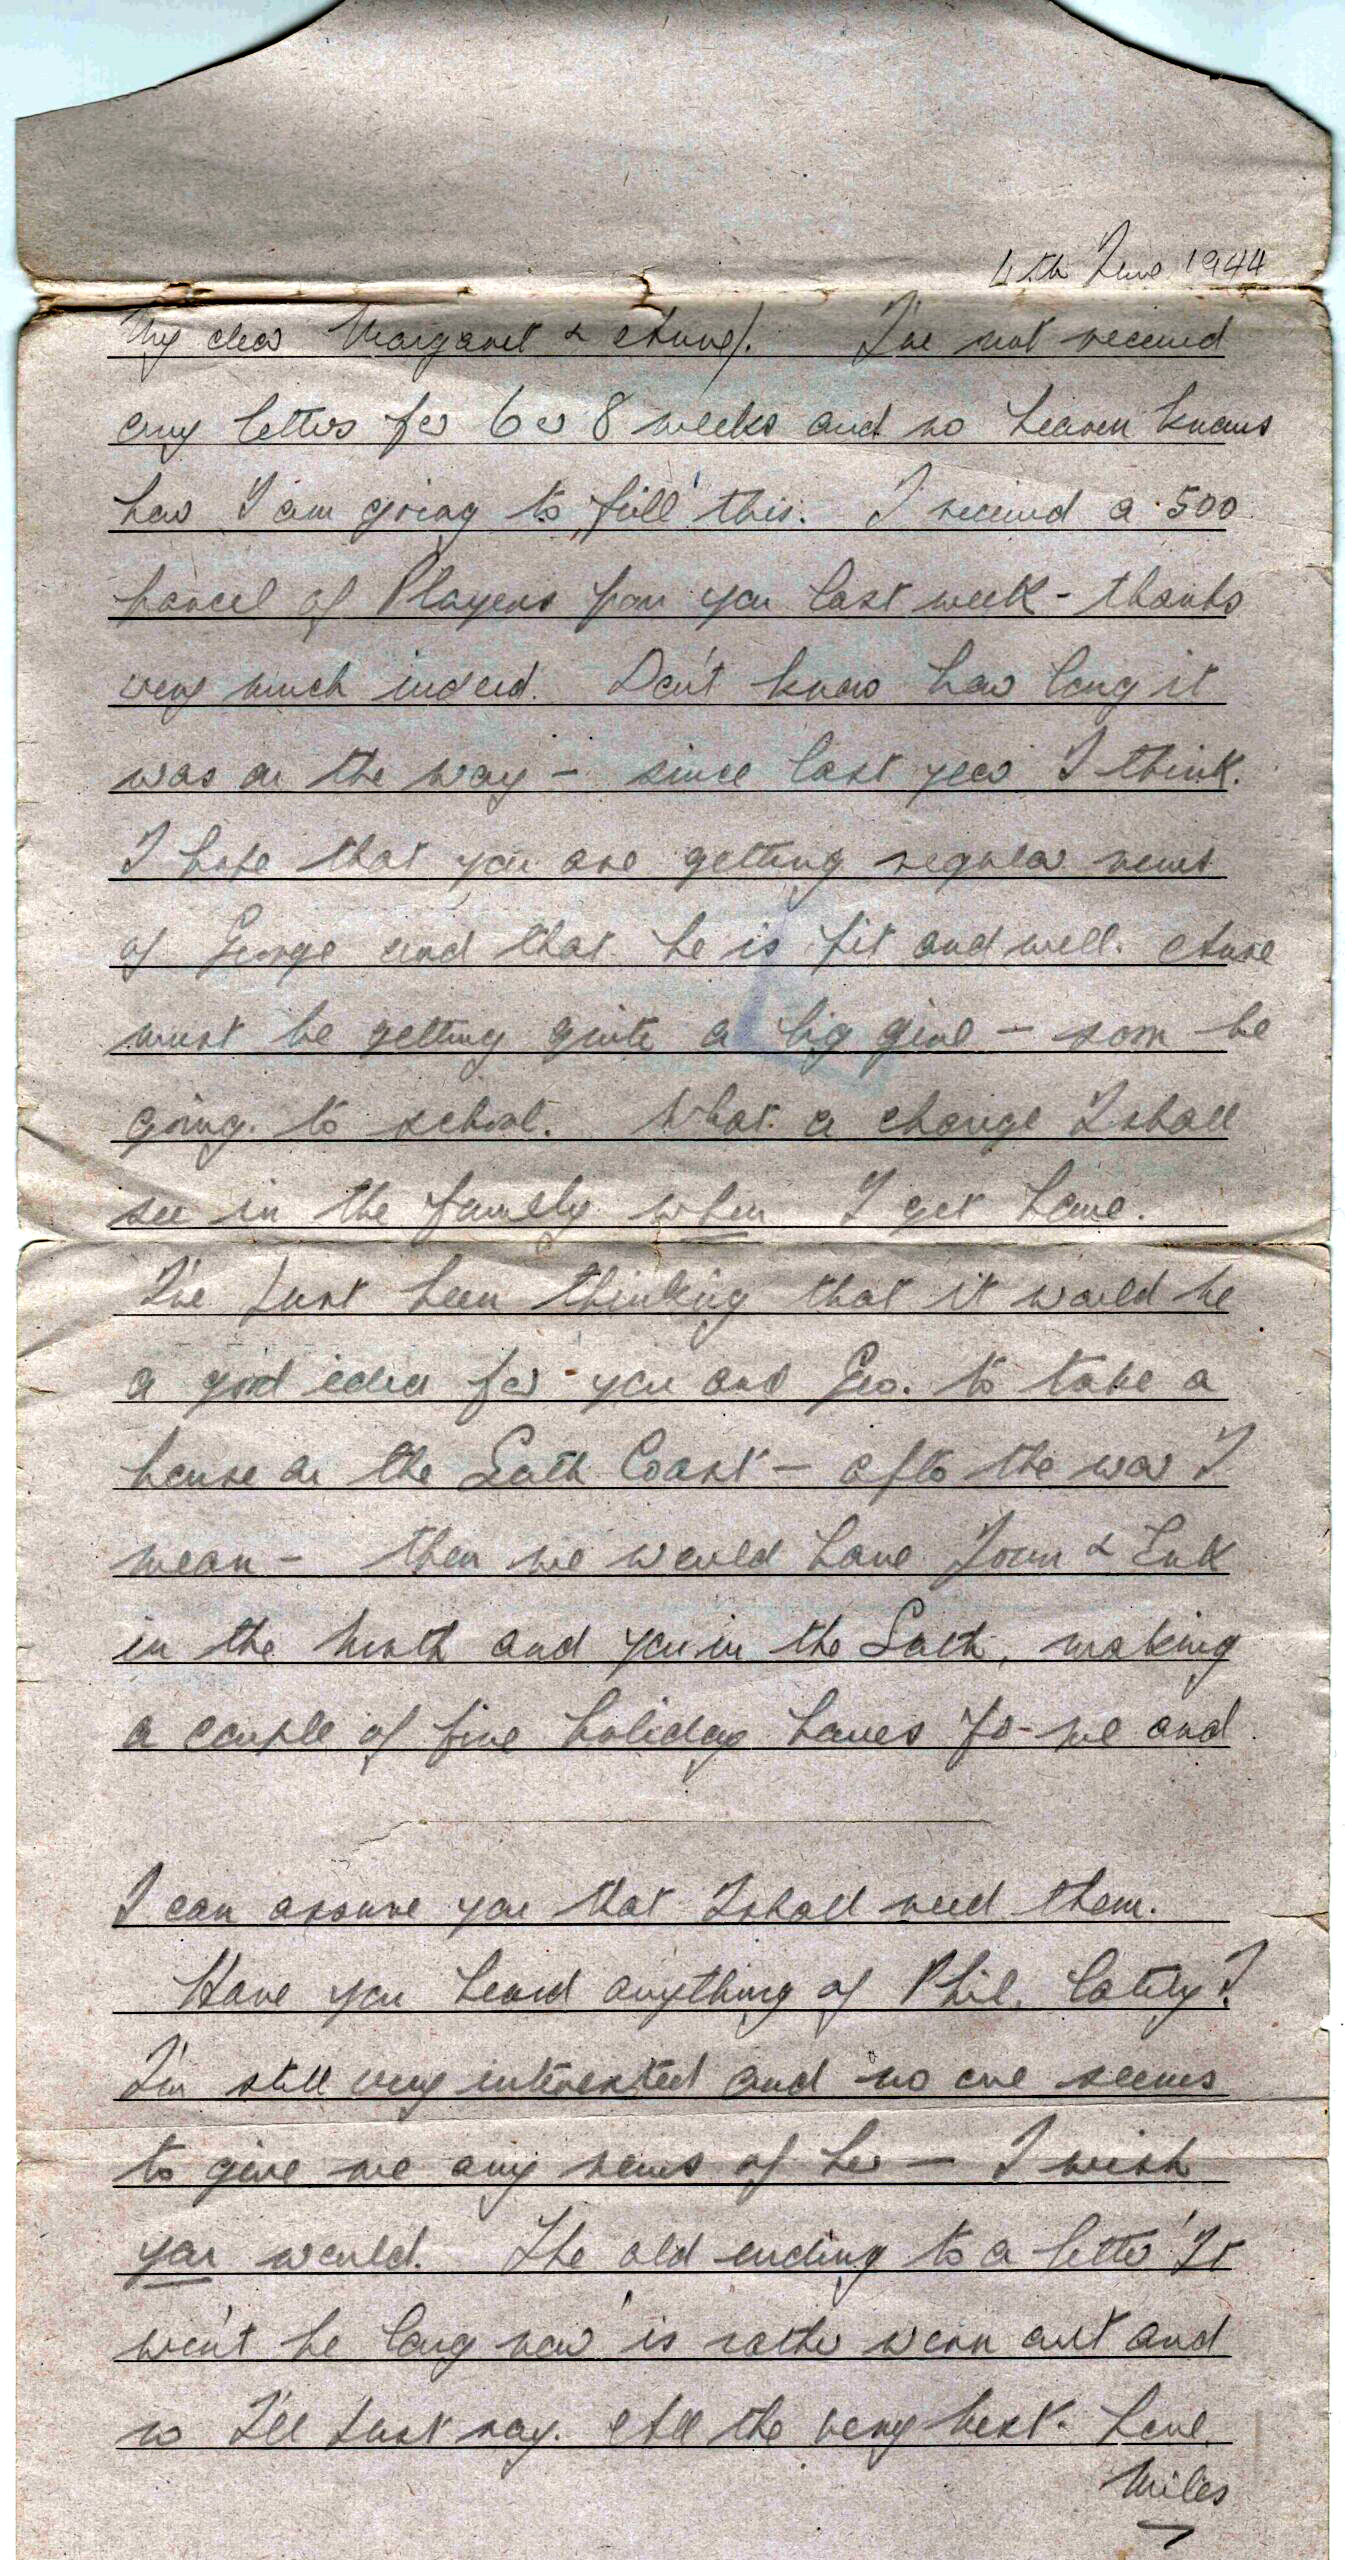 4th June 1944
My dear Margaret & Anne/. I've not received
any letters for 6 or 8 weeks and so heaven knows
how I am going to 'fill' this. I received a 500
parcel of Players from you last week - thanks
very much indeed. Don't know how long it
was on the way - since last year I think.
I hope that you are getting regular news
of George and that he is fit and well. Anne
must be getting quite a big girl - soon be
going to school. What a change I shall
see in the family when I get home.
I've just been thinking that it would be
a good idea for you and Geo. to take a
house on the South Coast - after the war I
mean - then we would have Joan & Erik
in the North and you in the South, making
a couple of fine holiday homes for me and
I can assure you that I shall need them.
Have you heard anything of Phil. lately?
I'm still very interested and no one seems
to give me any news of her - I wish
you would. The old ending to a letter 'It
won't be long now' is rather worn out and
so I'll just say. All the very best. Love.
Miles